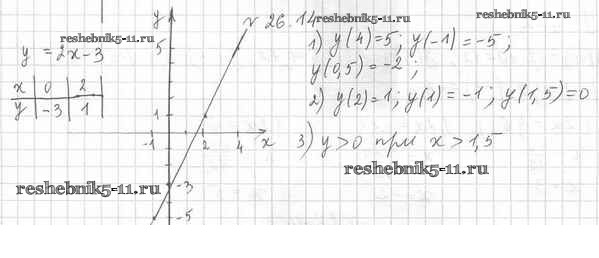 √ 26.14
reshebnik5-11.ru
reshebnik5-11.ru
reshebnik5-11.ru
y = 2x-3
x | 0 | 2
y | -3 | 1
y
5
1
-1
2
4
x
-3
-5
1) y(4)=5; y(-1)=-5;
y(0,5)=-2;
2) y(2)=1; y(1)=-1; y(1,5)=0
3) y>0 при x>1,5
reshebnik5-11.ru
reshebnik5-11.ru